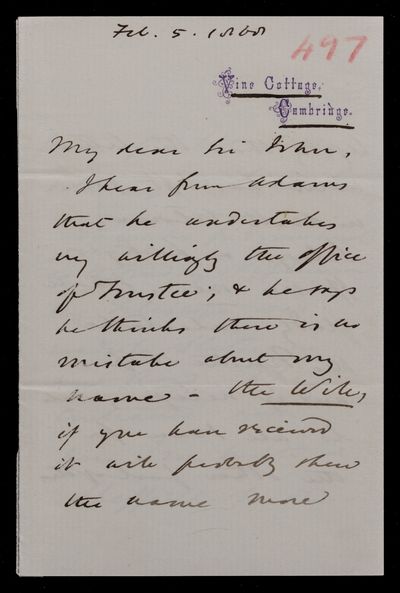 Feb. 5. 1868
497
Vine Cottage.
Cambridge.
My dear Sir John,
I hear from Adams
that he undertakes
very willingly the office
of Trustee; & he says
he thinks there is no
mistake about my
name - the Will,
if you have received
it will probably shew
the name more